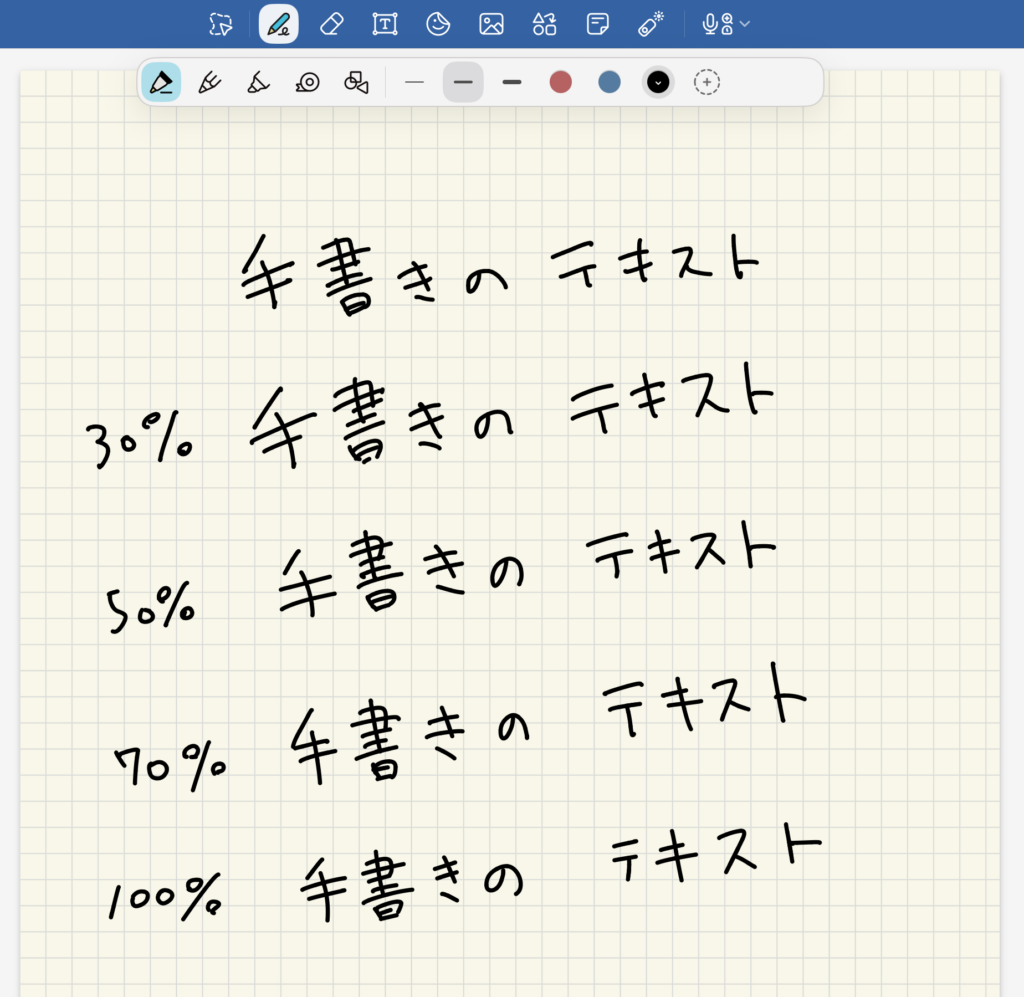 手書きの テキスト
30% 手書きの テキスト
50% 手書きの テキスト
70% 手書きの テキスト
100% 手書きの テキスト